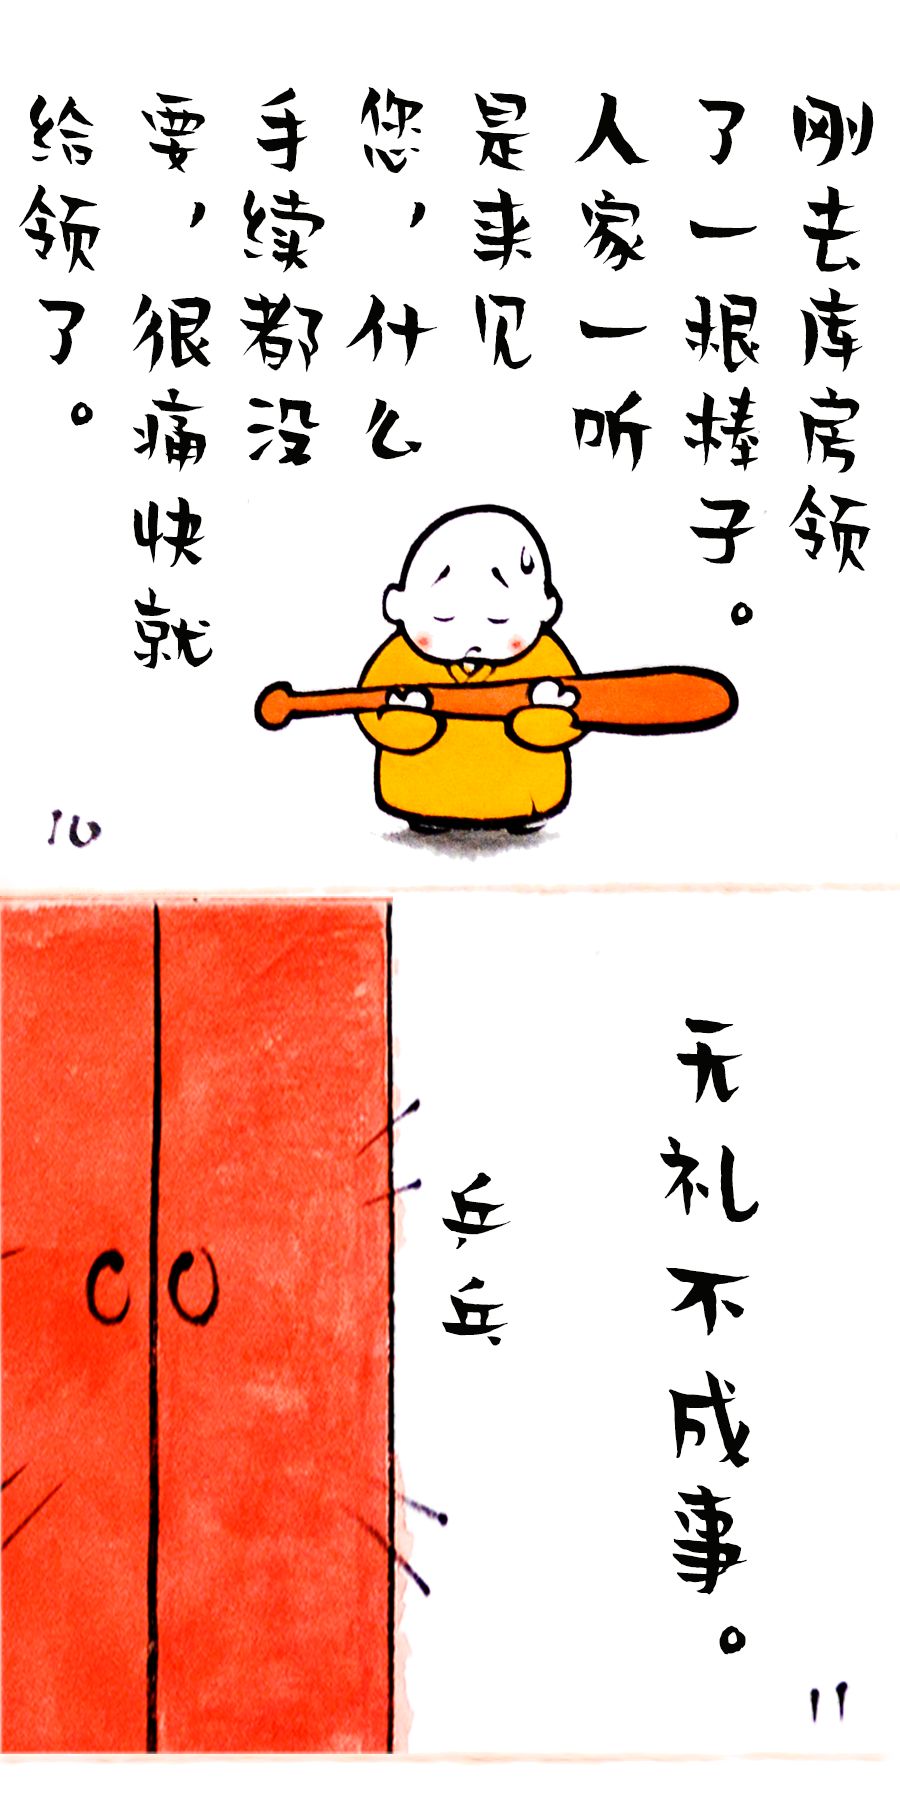 刚去库房领
了一根棒子。
人家一听
是来见
您，什么
手续都没
要，很痛快就
给领了。
10
无礼不成事。
乒乓
11